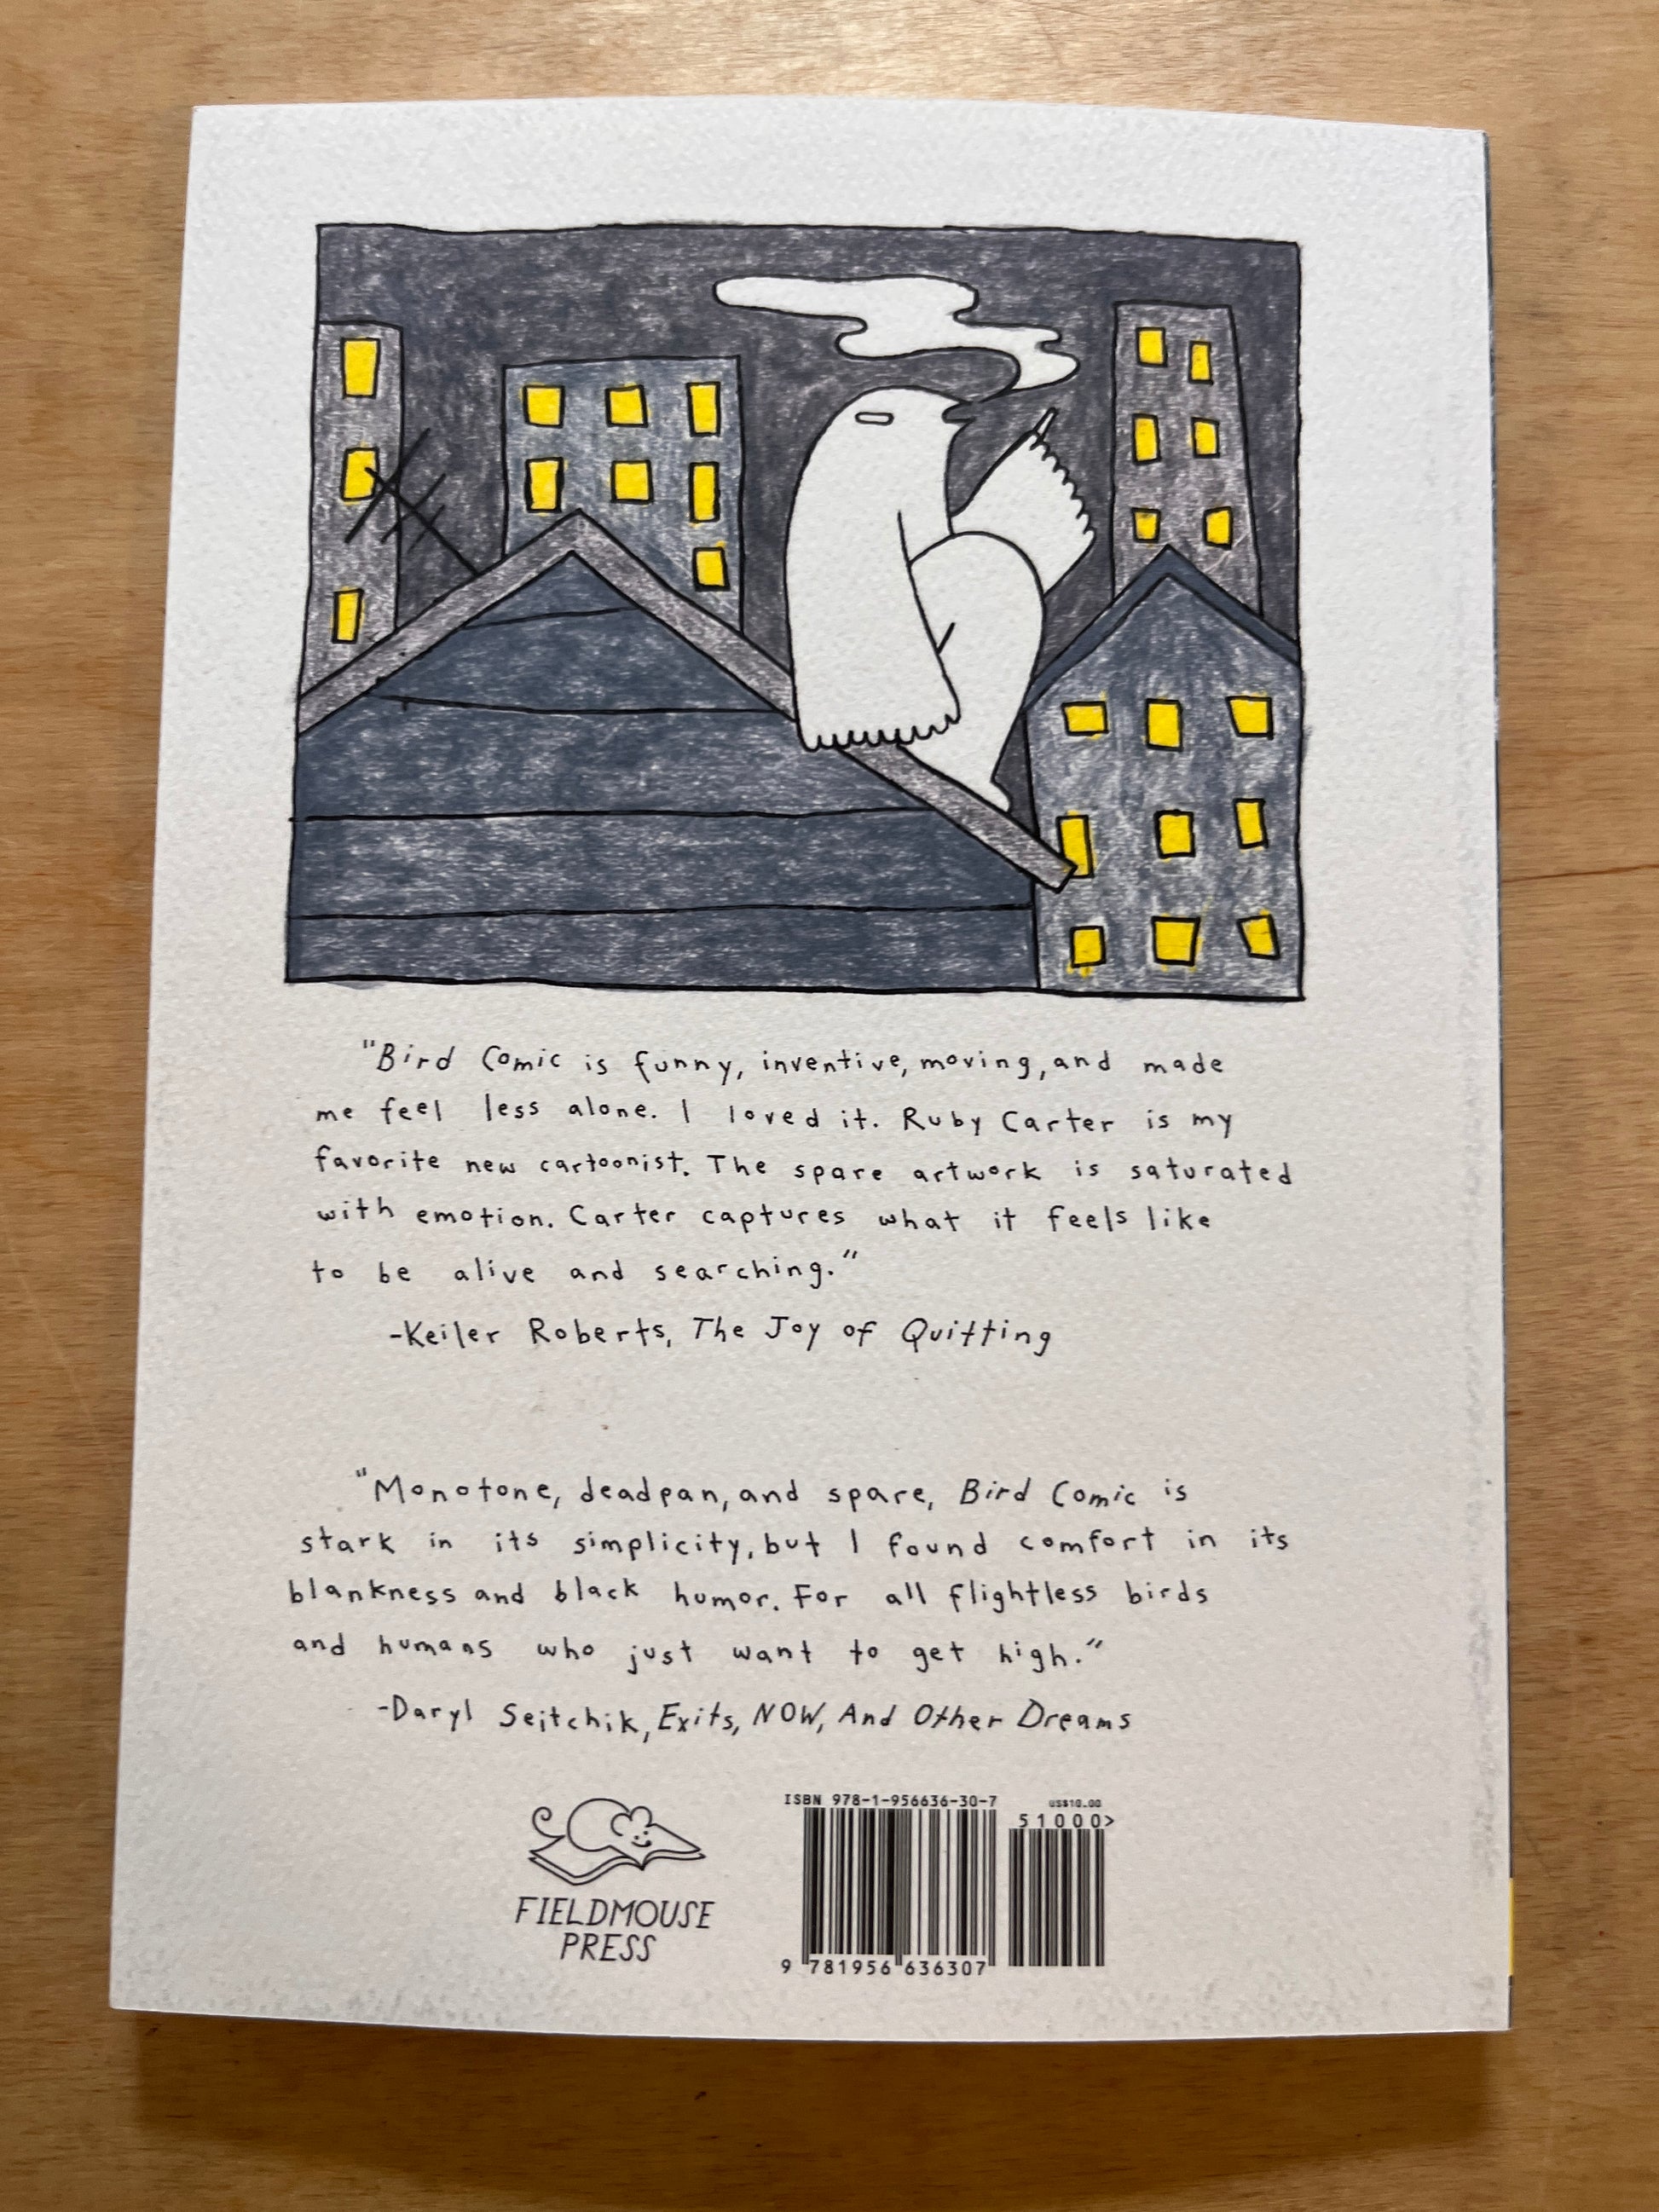 "Bird Comic is funny, inventive, moving, and made
me feel less alone. I loved it. Ruby Carter is my
favorite new cartoonist. The spare artwork is saturated
with emotion. Carter captures what it feels like
to be alive and searching."
-Keiler Roberts, The Joy of Quitting
"Monotone, deadpan, and spare, Bird Comic is
stark in its simplicity, but I found comfort in its
blankness and black humor. For all flightless birds
and humans who just want to get high."
-Daryl Seitchik, Exits, NOW, And Other Dreams
FIELDMOUSE
PRESS
ISBN 978-1-956636-30-7
US$10.00
51000>
9 781956 636307